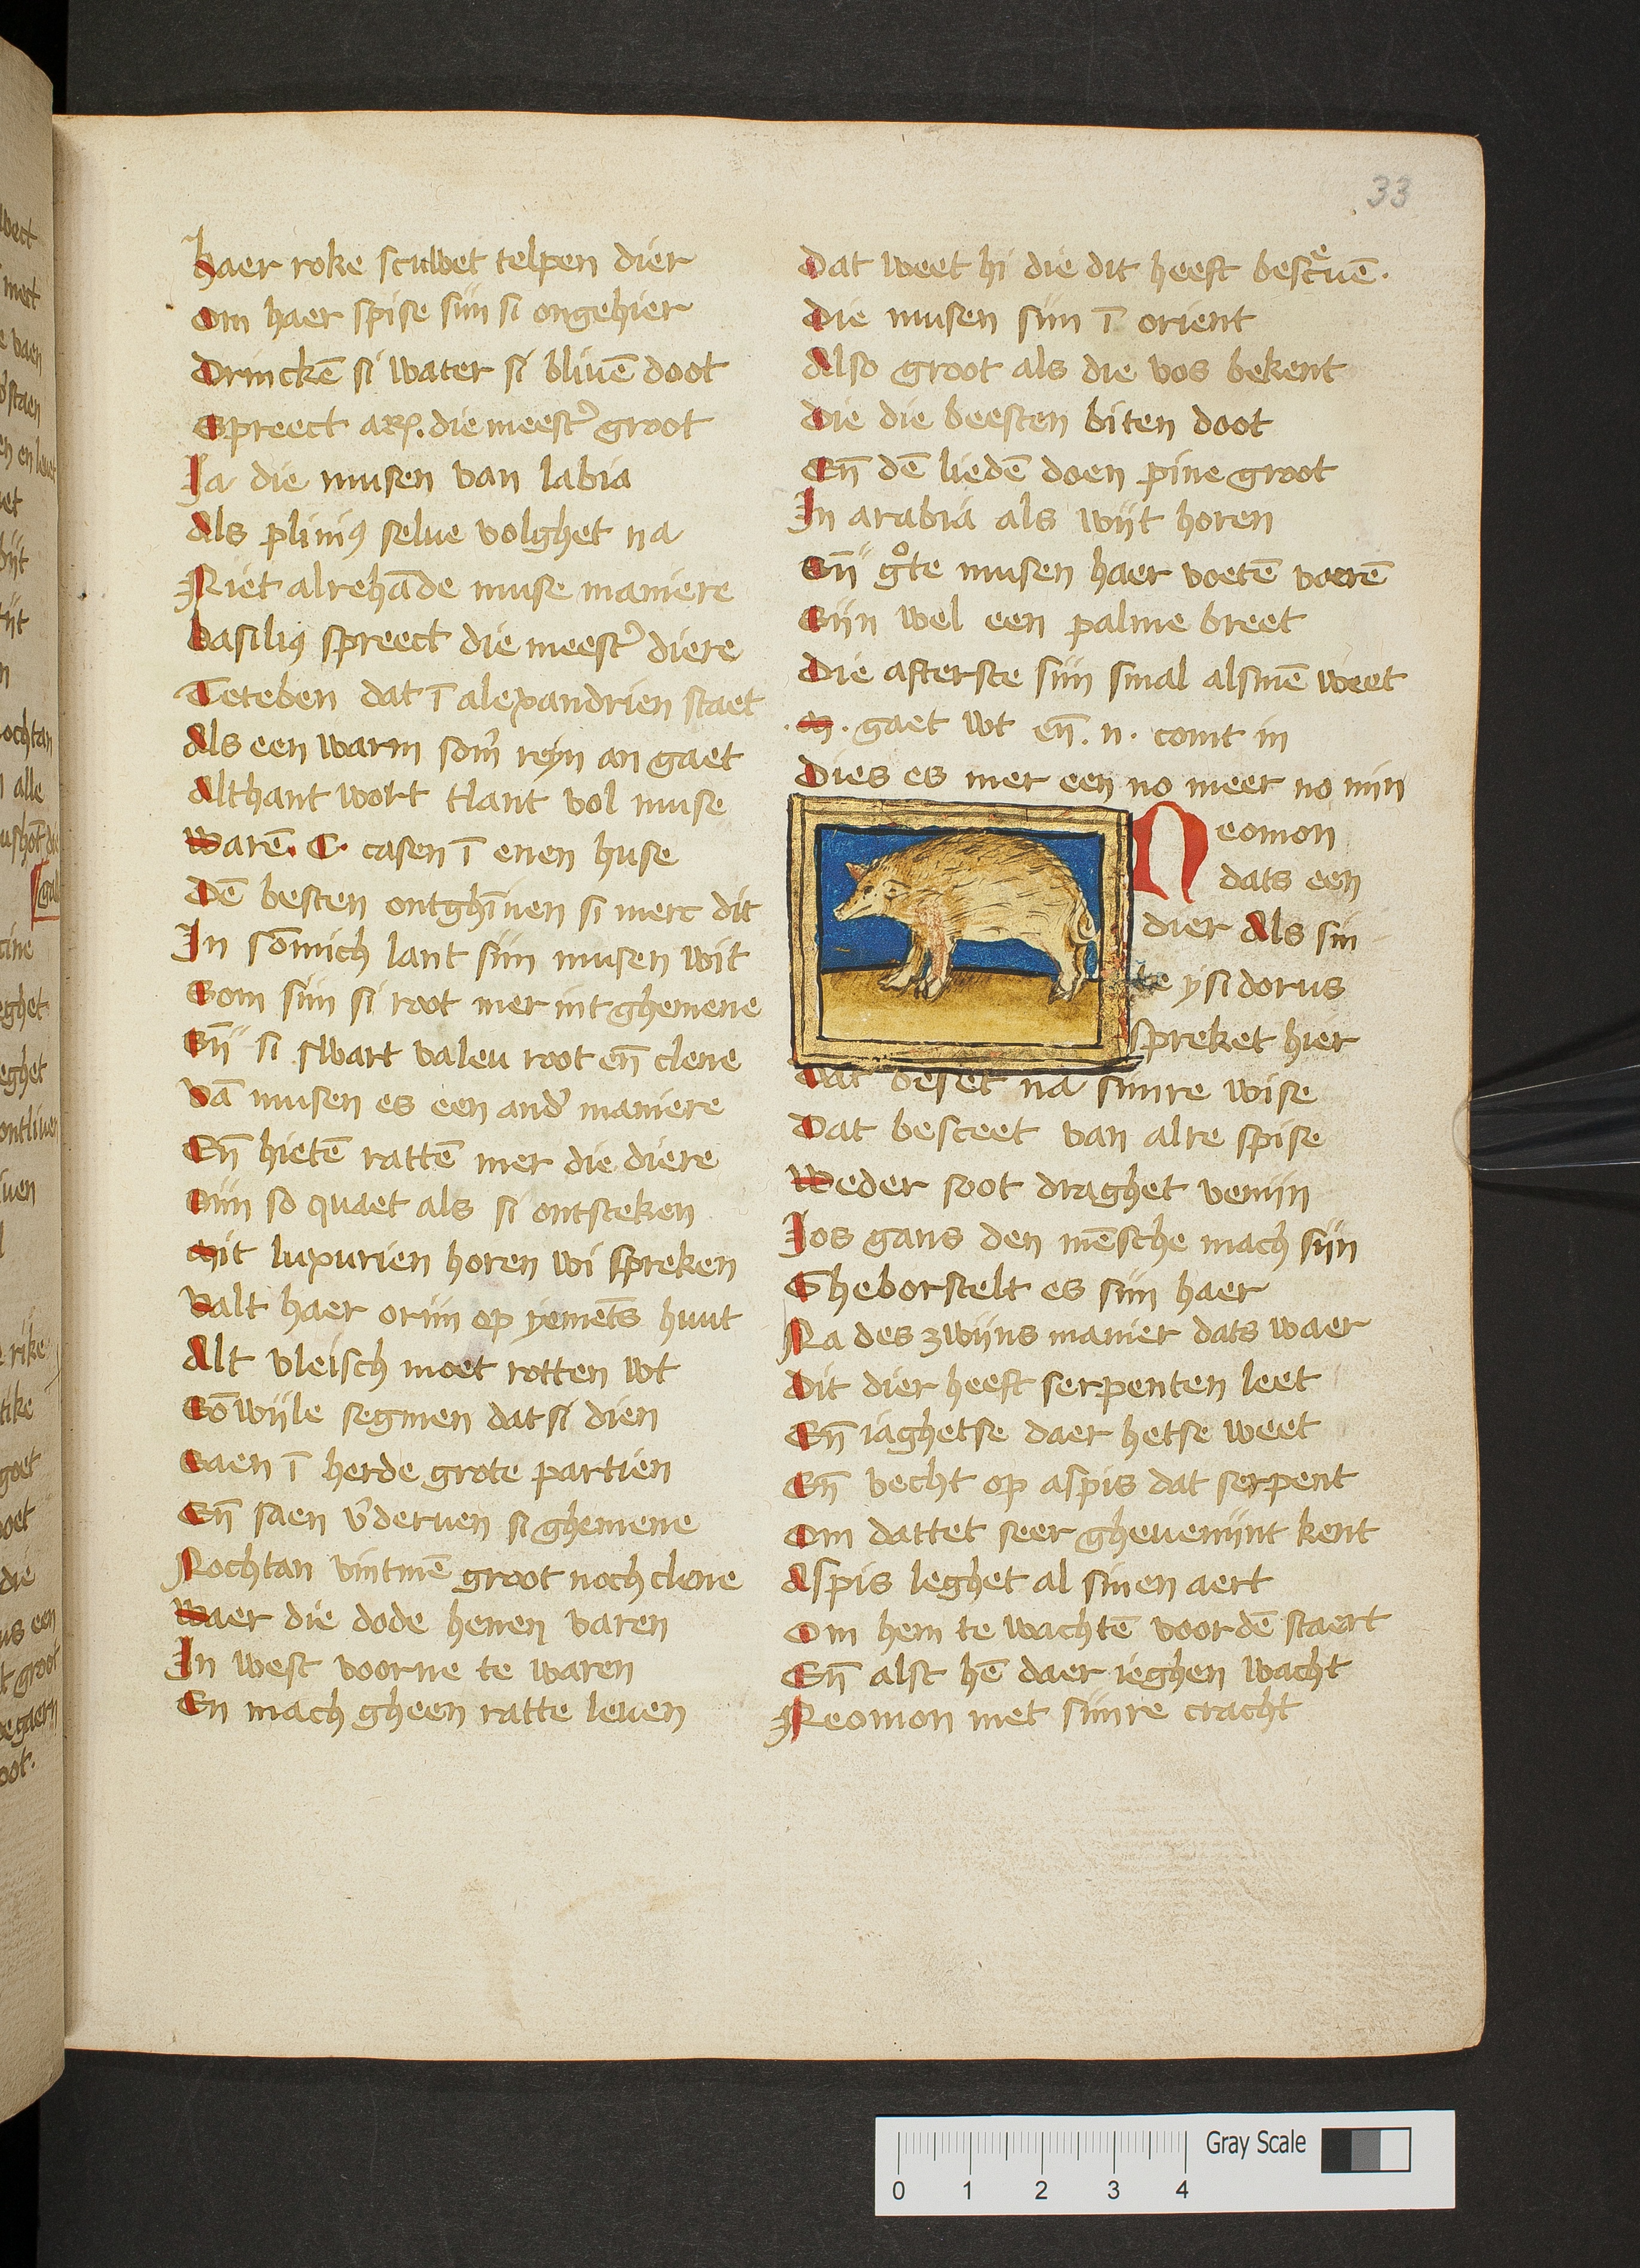 33
haer roke scuwet telpen dier
Om haer spise siin si ongehier
Drinckē si water si bliuē doot
Spreect die meestʾ groot
Ia die musen van labia
Als pliniꝰ selue volghet na
Niet alrehāde muse maniere
basiliꝰ spreect die meestʾ diere
Teteben dat ī alexandrien staet
Als een warm somʾ reyn an gaet
Althant wort tlant vol muse
Warē. C. casen ī enen huse
Dē besten ontghīnen si merc dit
In sōmich lant siin musen wit
Som siin si root mer int ghemene
En̄ si swart valeu root en̄ clene
Vā musen es een andʾ maniere
En̄ hietē rattē mer die diere
Siin so quaet als si ontsteken
Mit luxurien horen wi spreken
Valt haer oriin op yemēts huut
Alt vleisch moet rotten wt
Sōwijle segmen dat si dien
Saen ī herde grote partien
En̄ saen vʾderuen si ghemene
Nochtan vintmē groot noch clene
Waer die dode henen varen
In west voorne te waren
En mach gheen ratte leuen
Dat weet hi die dit heeft bescͤuē.
Die musen siin ī orient
Also groot als die vos bekent
Die die beesten biten doot
En̄ dē liedē doen pine groot
In arabia als wijt horen
En̄ gͦte musen haer voetē voerē
Siin wel een palme breet
Die afterste siin smal alsmē weet
.M. gaet wt en̄ .n. comt in
Dies es mer een no meer no min
Neomon
dats een
dier Als sin
te ysidorus
spreket hier
Dat beset na siinre wise
Dat besceet van alre spise
Weder soot draghet veniin
Ios gans den mēsche mach siin
Gheborstelt es siin haer
Na des zwijns manier dats waer
Dit dier heeft serpenten leet
En̄ iaghetse daer hetse weet
En̄ vecht op aspis dat serpent
Om dattet seer gheueniint kent
Aspis leghet al sinen aert
Om hem te wachtē voordē staert
En̄ alst hē daer ieghen wacht
Neomon met siinre cracht
Gray Scale
0 1 2 3 4